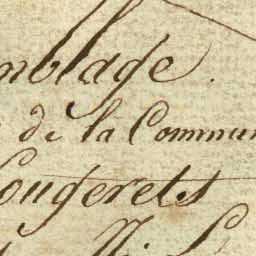 mblage.
de la Commun
ougerets